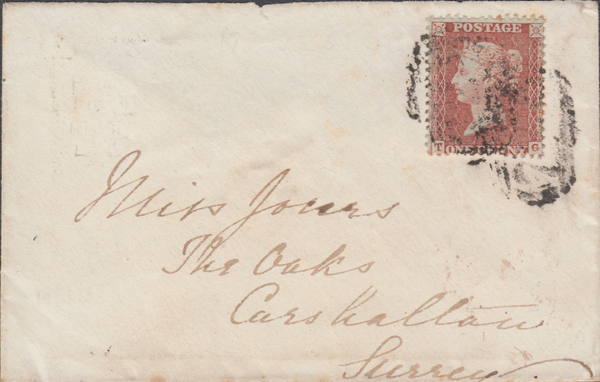 POSTAGE
T ONE PENNY G
Miss Jones
The Oaks
Carshalton
Surrey